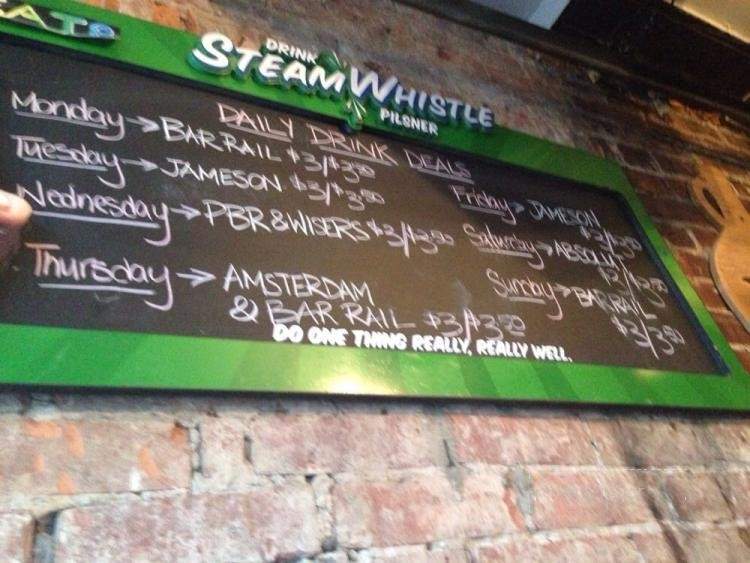 EATS
DRINK
STEAMWHISTLE
PILSNER
DAILY DRINK DEALS
Monday → BAR RAIL $3/$3.50
Tuesday → JAMESON $3/$3.50
Wednesday → PBR & WISERS $3/$3.50
Thursday → AMSTERDAM
& BAR RAIL $3/$3.50
Friday → JAMESON
$3/$3.50
Saturday → ABSOLUT
$3/$3.50
Sunday → BAR RAIL
$3/$3.50
DO ONE THING REALLY, REALLY WELL.